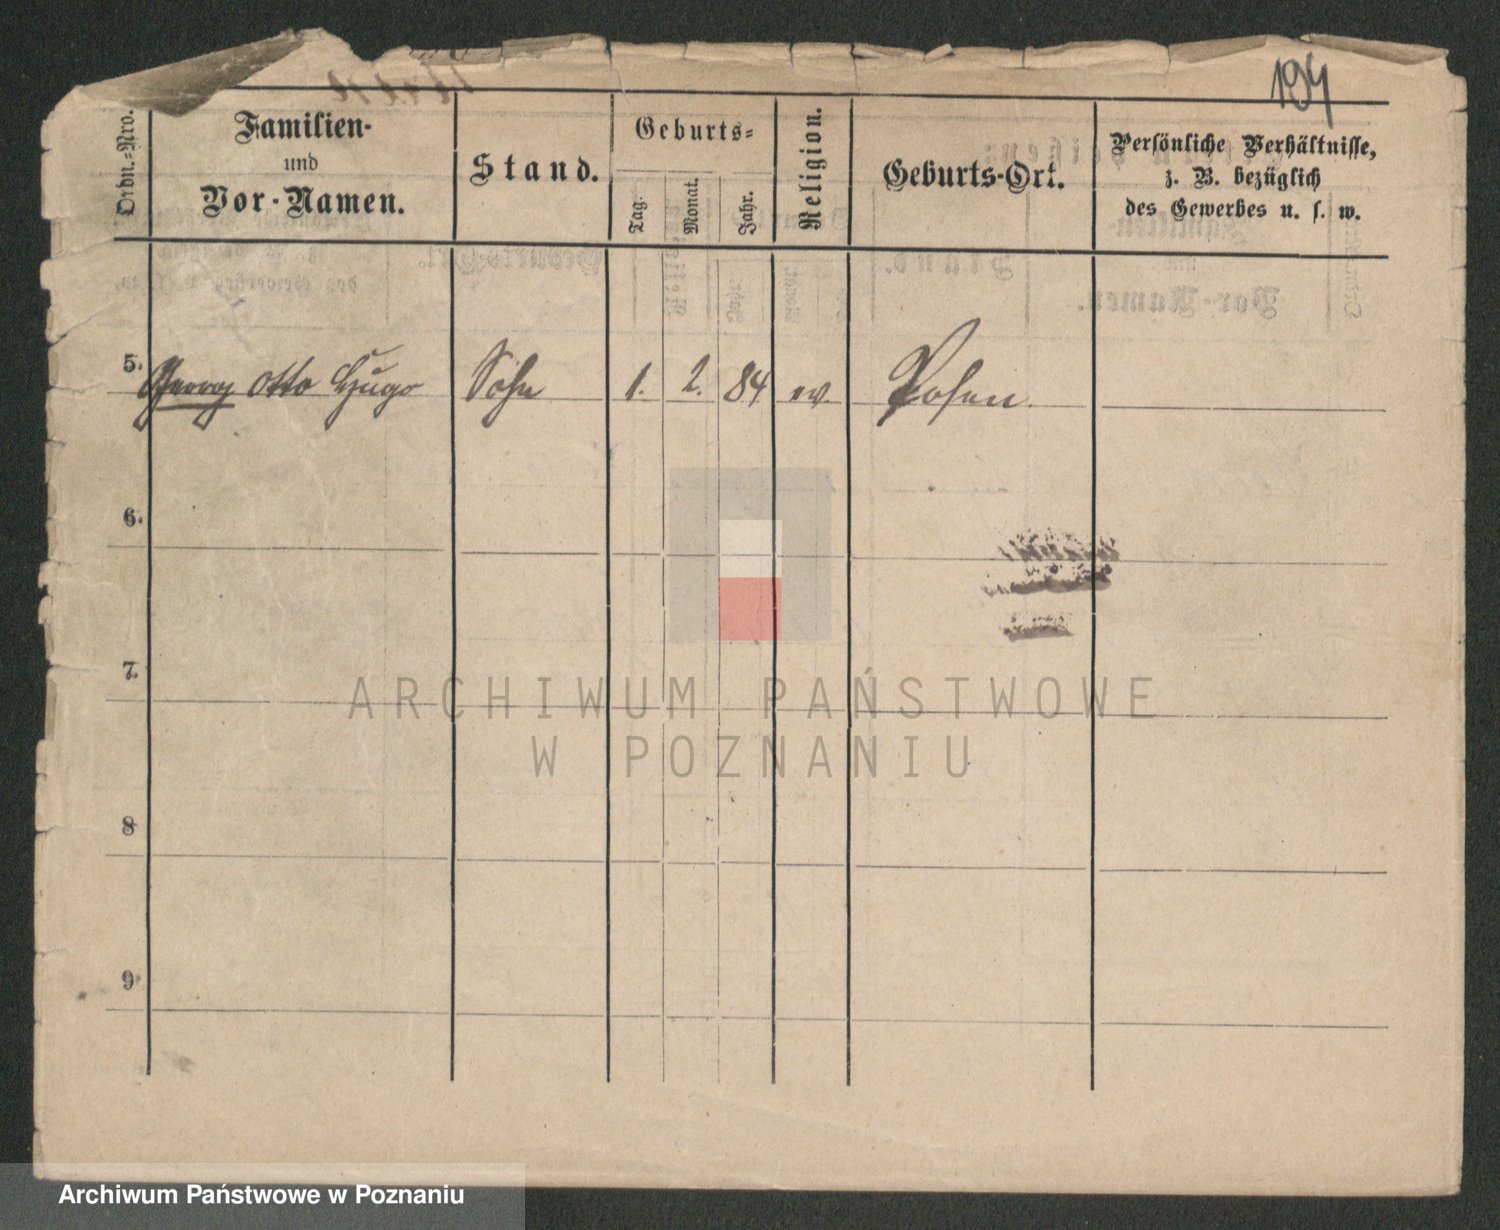 194
Ordn.-Nro.
Familien-
und
Vor-Namen.
Stand.
Geburts-
Tag.
Monat.
Jahr.
Religion.
Geburts-Ort.
Persönliche Verhältnisse,
z. B. bezüglich
des Gewerbes u. s. w.
5. Georg Otto Hugo Sohn 1. 2. 84 ev. Posen.
6.
7.
8.
9.
ARCHIWUM PAŃSTWOWE
W POZNANIU
Archiwum Państwowe w Poznaniu